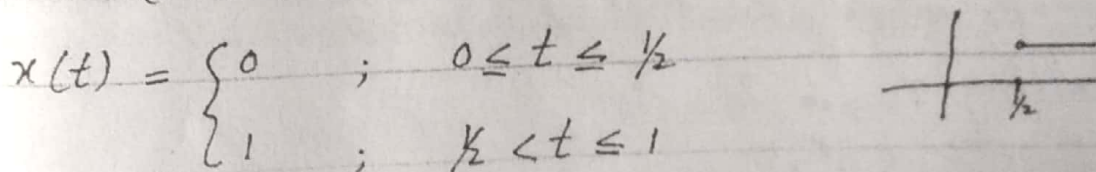 x(t) = { 0 ; 0 ≤ t ≤ 1/2
1 ; 1/2 < t ≤ 1
1/2